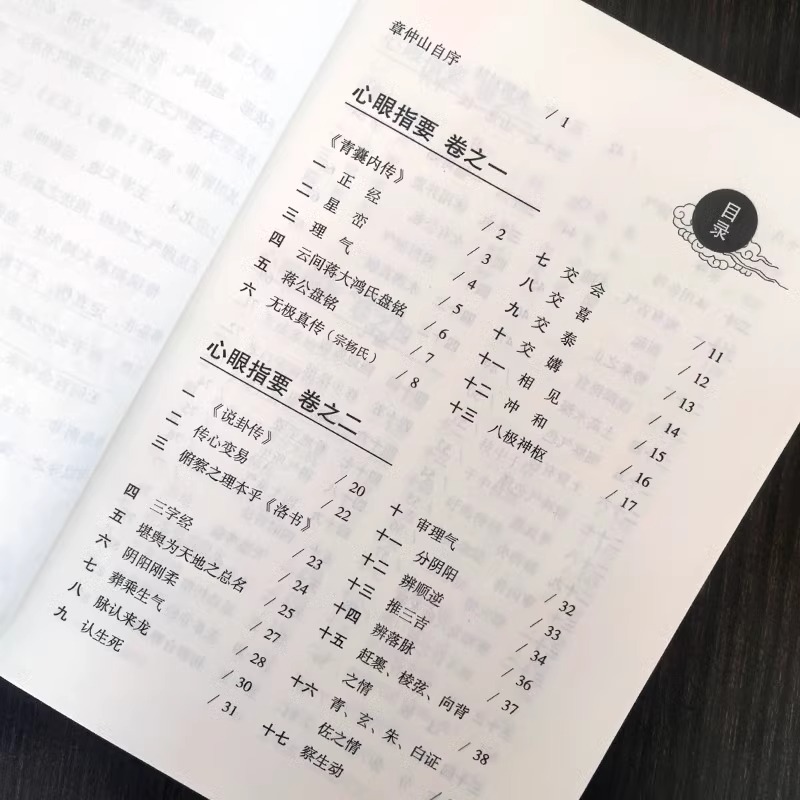 章仲山自序 /1
心眼指要 卷之一
《青囊内传》 /2
一 正经 /3
二 星峦 /4
三 理气 /5
四 云间蒋大鸿氏盘铭 /6
五 蒋公盘铭 /7
六 无极真传(宗杨氏) /8
七 交会 /11
八 交喜 /12
九 交泰 /13
十 交媾 /14
十一 相见 /15
十二 冲和 /16
十三 八极神枢 /17
目录
心眼指要 卷之二
一 《说卦传》 /20
二 传心变易 /22
三 俯察之理本乎《洛书》 /23
四 三字经 /24
五 堪舆为天地之总名 /25
六 阴阳刚柔 /27
七 葬乘生气 /28
八 脉认来龙 /30
九 认生死 /31
十 审理气 /32
十一 分阴阳 /33
十二 辨顺逆 /34
十三 推三吉 /36
十四 辨落脉 /37
十五 赶裹、棱弦、向背
之情 /38
十六 青、玄、朱、白证
佐之情
十七 察生动